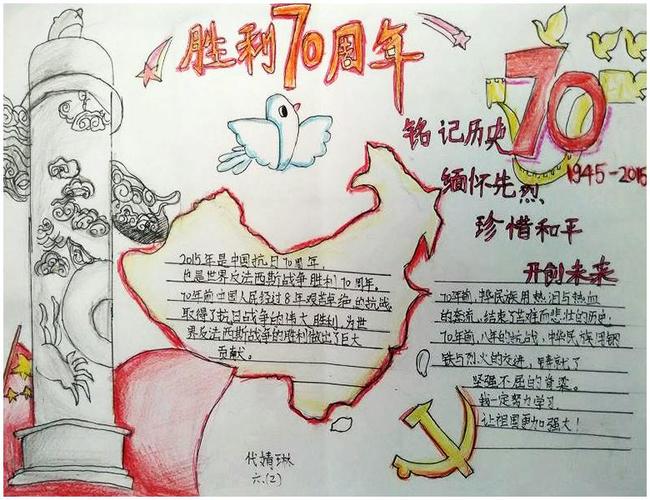 胜利70周年
铭记历史
缅怀先烈
珍惜和平
开创未来
70
1945-2015
2015年是中国抗日70周年,
也是世界反法西斯战争胜利70周年。
70年前中国人民经过8年艰苦卓绝的抗战,
取得了抗日战争的伟大胜利,为世
界反法西斯战争的胜利做出了巨大
贡献。
70年前,中华民族用热泪与热血
的奔流,结束了苦难而悲壮的历史.
70年前,八年的抗战,中华民族用钢
铁与烈火的交迸,铸就了
坚强不屈的脊梁。
我一定努力学习,
让祖国更加强大!
代婧琳
六.(2)